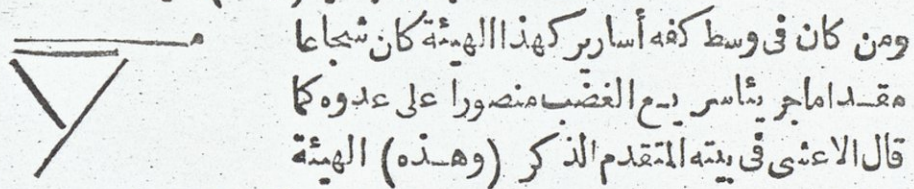 ومن كان فى وسط كفه أسارير كهذا الهيئة كان شجاعا
مقداما جريئا سريع الغضب منصورا على عدوه كما
قال الاعشى فى بيته المتقدم الذكر (وهذه) الهيئة